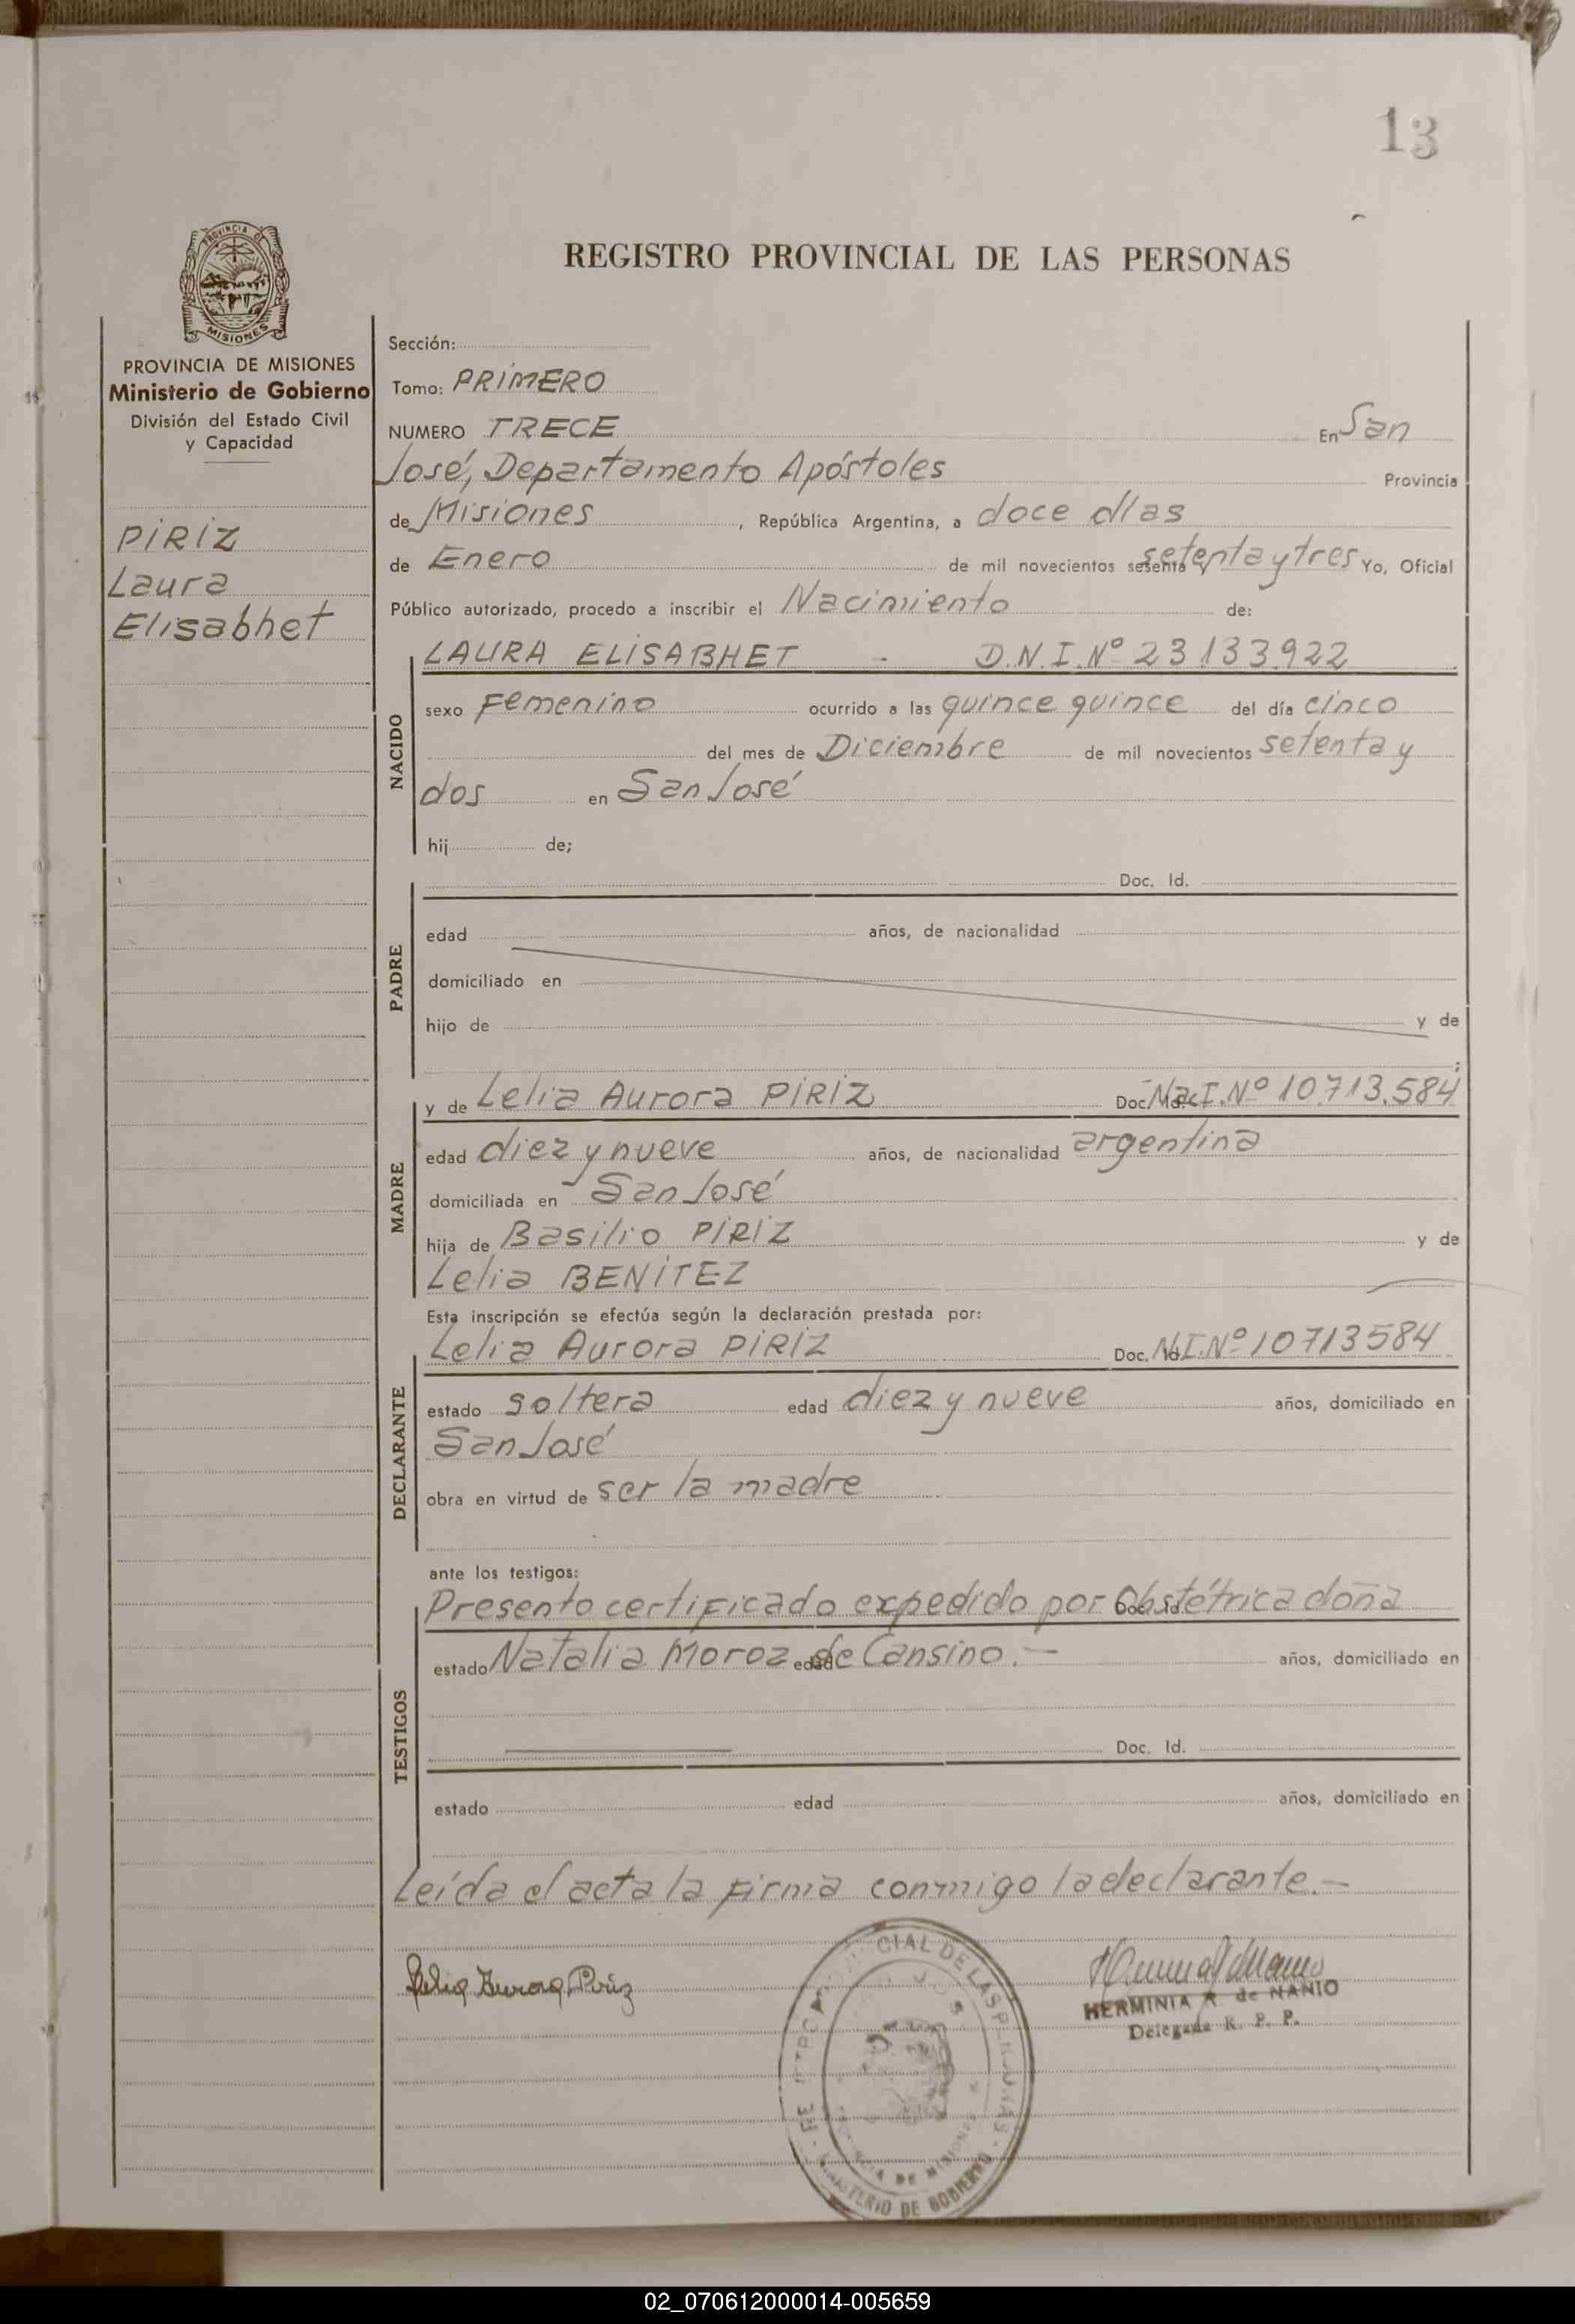 13
REGISTRO PROVINCIAL DE LAS PERSONAS
PROVINCIA DE
MISIONES
PROVINCIA DE MISIONES
Ministerio de Gobierno
División del Estado Civil
y Capacidad
PIRIZ
Laura
Elisabhet
Sección:
Tomo: PRIMERO
NUMERO TRECE En San
José, Departamento Apóstoles Provincia
de Misiones , República Argentina, a doce días
de Enero de mil novecientos sesenta y setenta y tres Yo, Oficial
Público autorizado, procedo a inscribir el Nacimiento de:
NACIDO
LAURA ELISABHET - D.N.I. Nº 23.133.922
sexo Femenino ocurrido a las quince quince del día cinco
del mes de Diciembre de mil novecientos setenta y
dos en San José
hij de;
PADRE
Doc. Id.
edad años, de nacionalidad
domiciliado en
hijo de y de
MADRE
y de Lelia Aurora PIRIZ Doc. Id. Nº 10.713.584
edad diez y nueve años, de nacionalidad argentina
domiciliada en San José
hija de Basilio PIRIZ y de
Lelia BENITEZ
Esta inscripción se efectúa según la declaración prestada por:
DECLARANTE
Lelia Aurora PIRIZ Doc. Id. Nº 10713584
estado soltera edad diez y nueve años, domiciliado en
San José
obra en virtud de ser la madre
ante los testigos:
TESTIGOS
Presento certificado expedido por Obstétrica doña
estado Natalia Moroz edad de Cansino.- años, domiciliado en
Doc. Id.
estado edad años, domiciliado en
Leída el acta la firma conmigo la declarante.-
Lelia Aurora Piriz
HERMINIA R. de NANIO
Delegada R. P. P.
CIAL DE LAS PERSONAS
MINISTERIO DE GOBIERNO
DE MISIONES
02_070612000014-005659